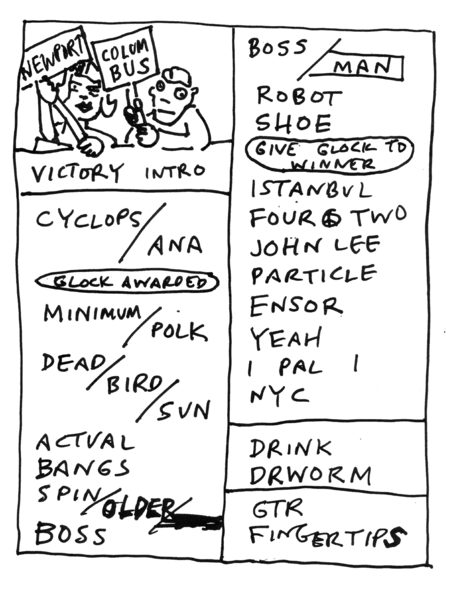 NEWPORT
COLUM
BUS
VICTORY INTRO
CYCLOPS/
ANA
GLOCK AWARDED
MINIMUM/
POLK
DEAD/
BIRD/
SUN
ACTUAL
BANGS
SPIN/OLDER/
BOSS
BOSS/
MAN
ROBOT
SHOE
GIVE GLOCK TO
WINNER
ISTANBUL
FOUR & TWO
JOHN LEE
PARTICLE
ENSOR
YEAH
I PAL I
NYC
DRINK
DRWORM
GTR
FINGERTIPS